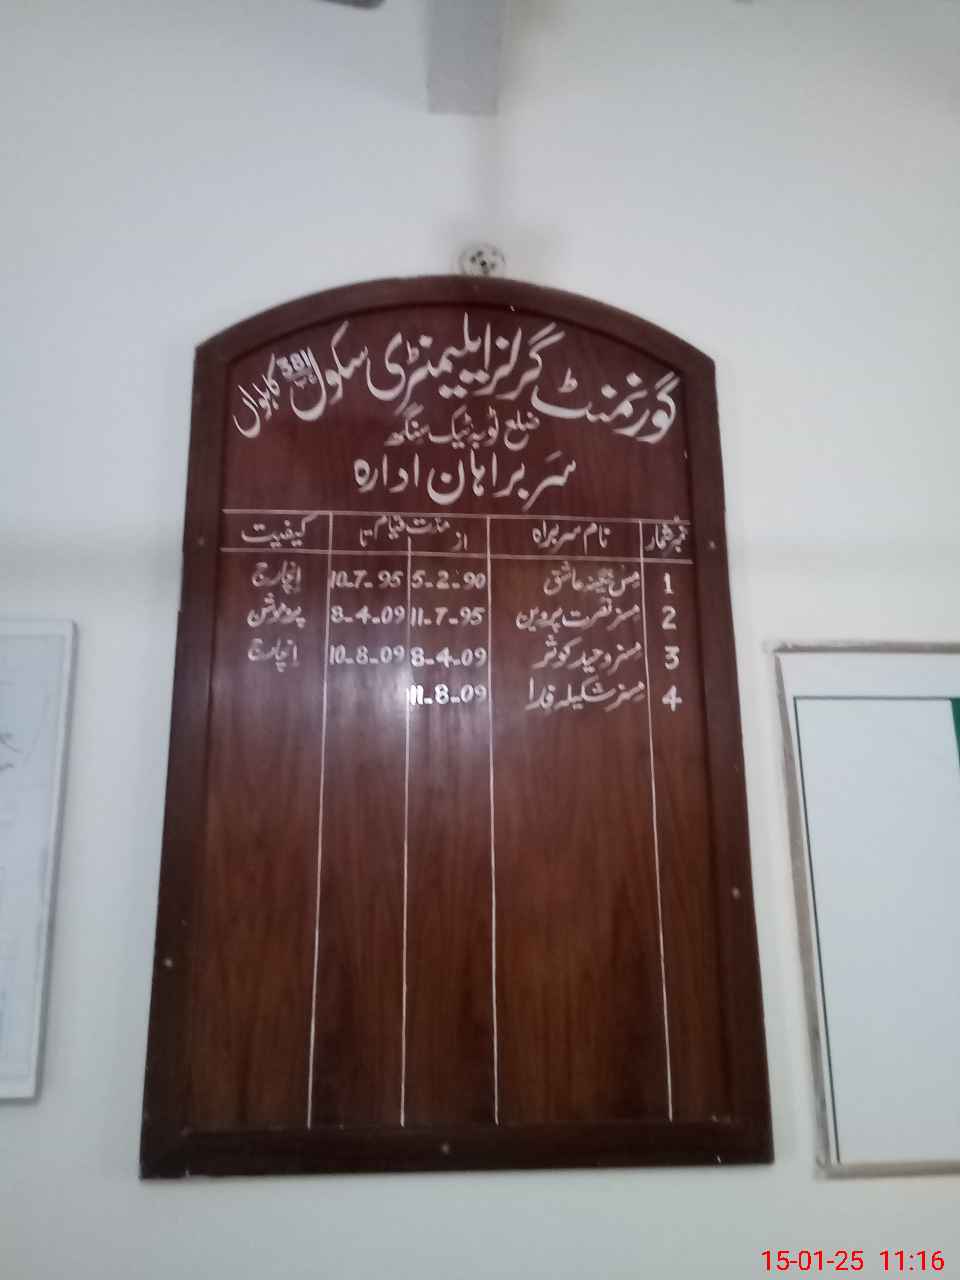 گورنمنٹ گرلز ایلیمنٹری سکول 381 ج ب کاہلواں
ضلع ٹوبہ ٹیک سنگھ
سربراہان ادارہ
نمبر شمار نام سربراہ از مدت قیام تا کیفیت
1 مس عاشق 5-2-90 10-7-95 انچارج
2 مسز نصرت پروین 11-7-95 8-4-09 پروموشن
3 مسز وحید کوثر 8-4-09 10-8-09 انچارج
4 مسز شکیلہ فدا 11-8-09
15-01-25 11:16